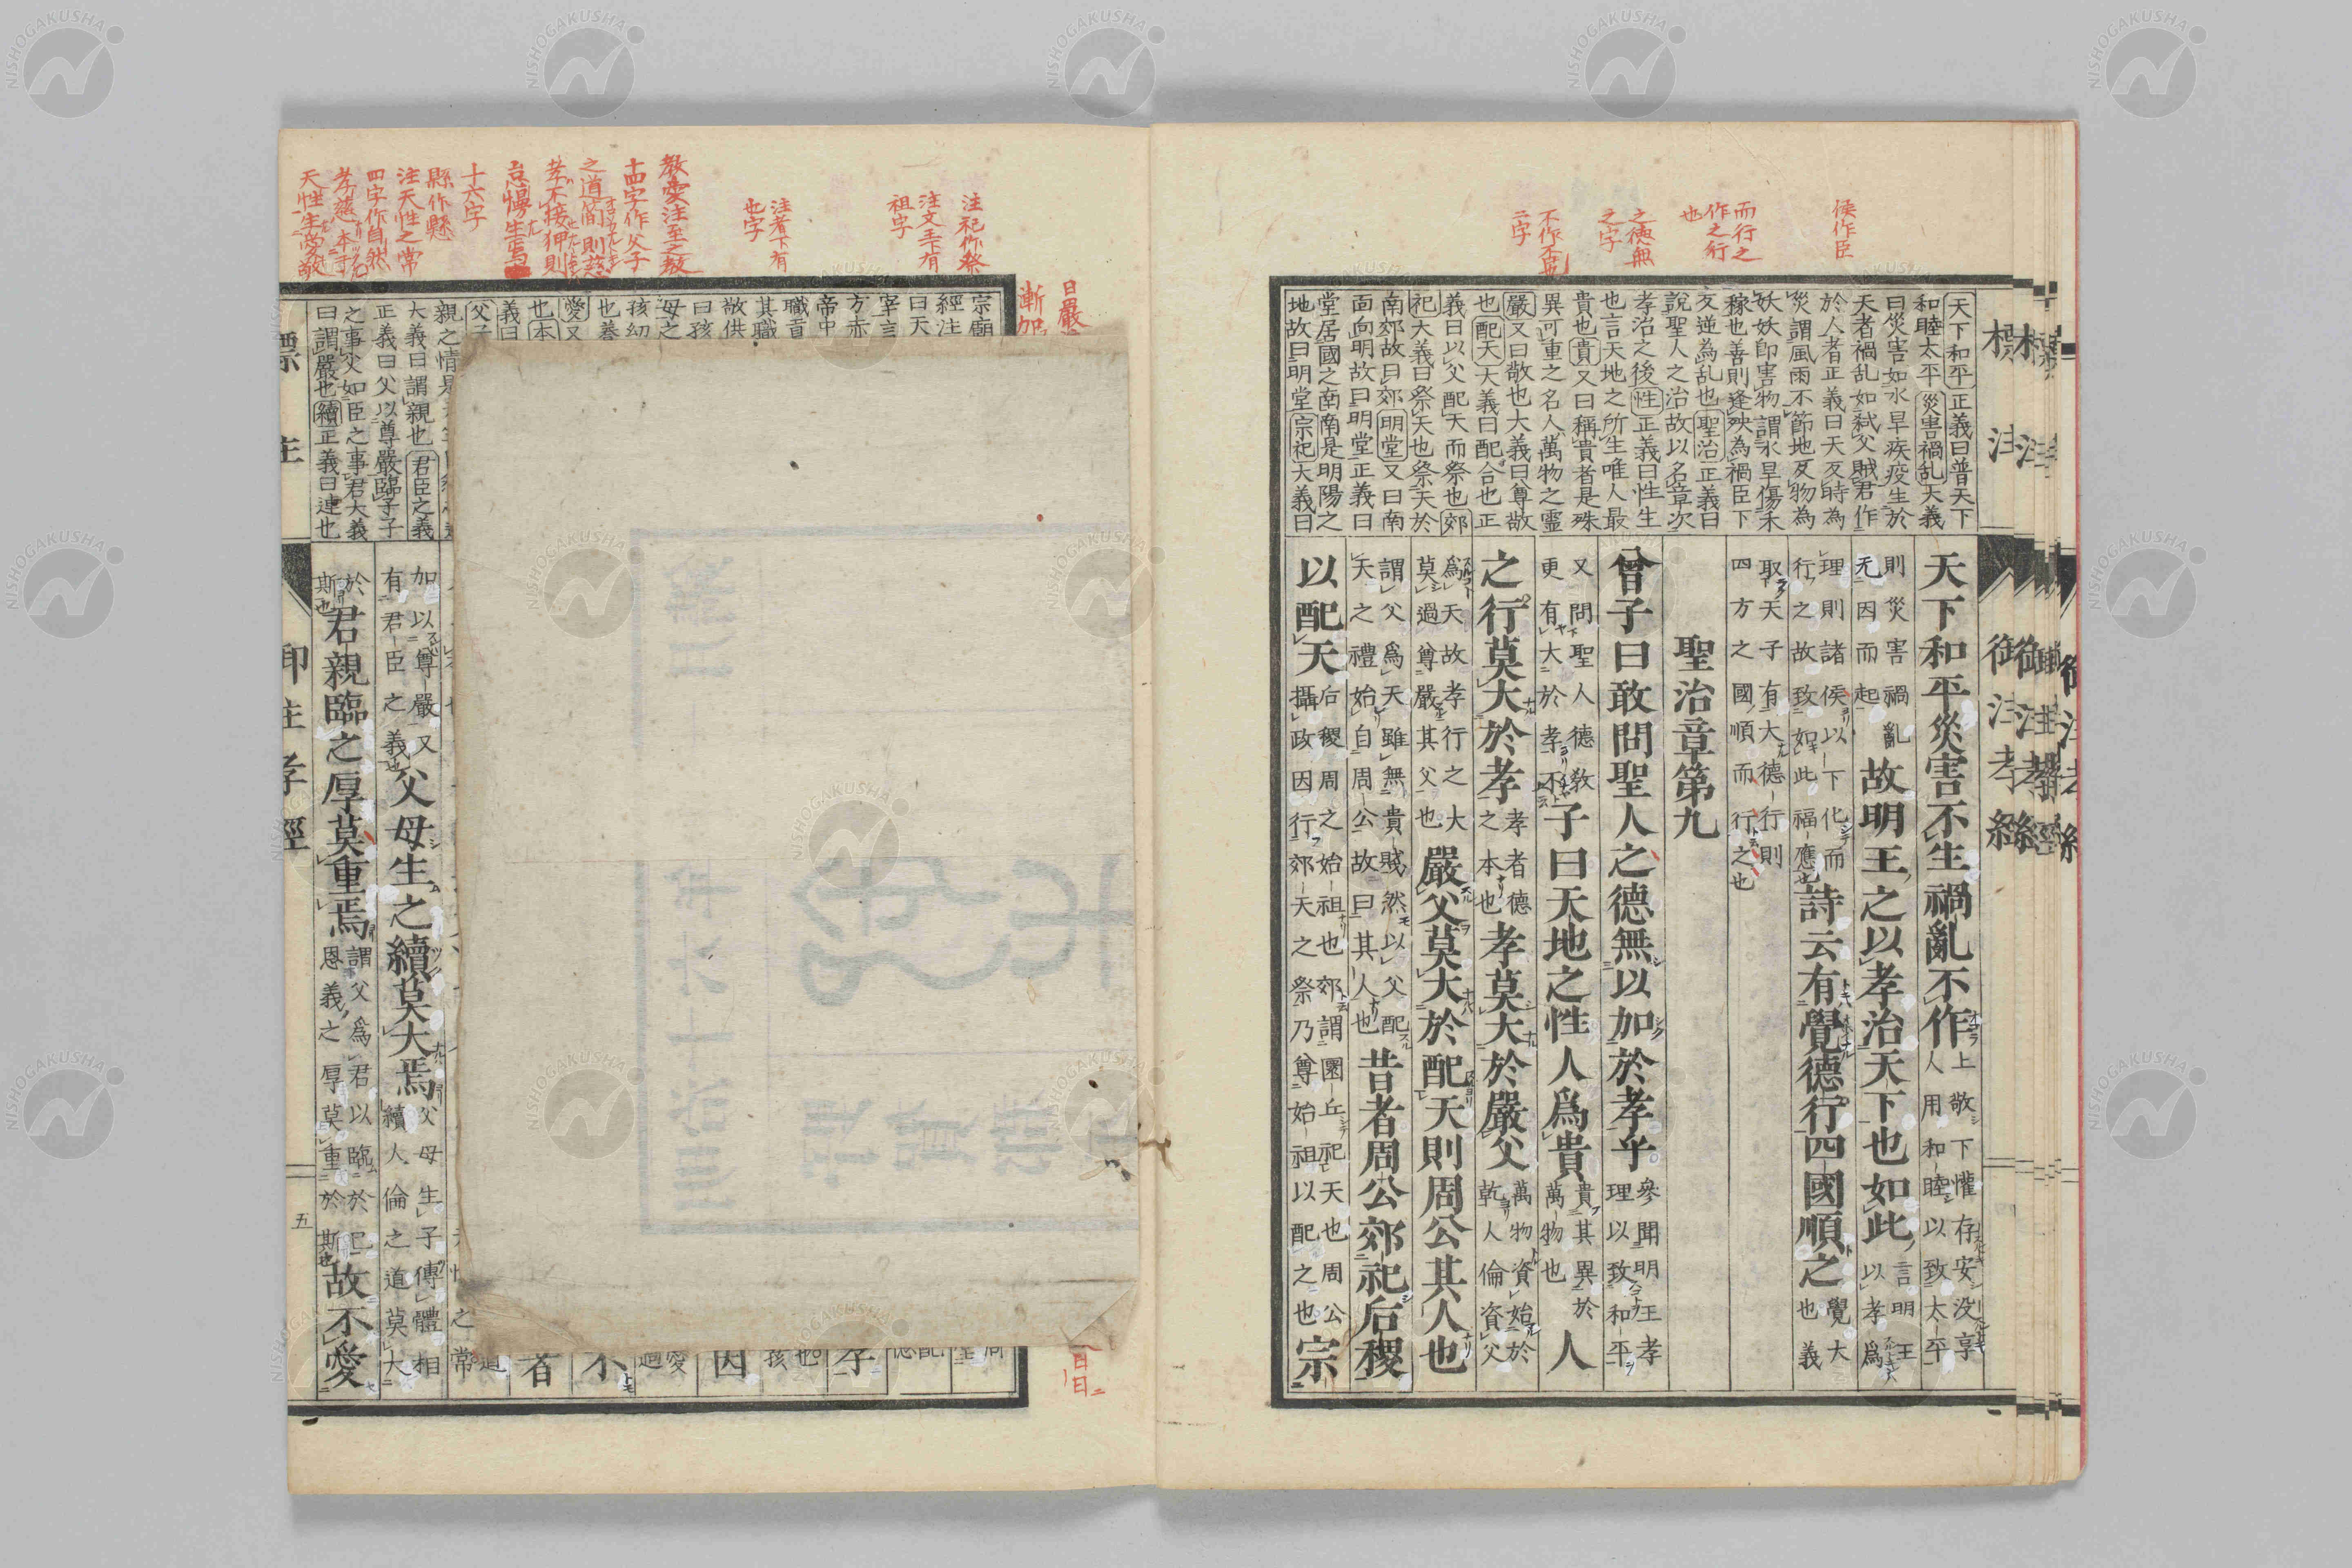 侯作臣
而行之
作之行
也
之德無
之字
不作不
二字
天下和平正義曰普天下
和睦太平災害禍乱大義
曰災害如水旱疾疫生於
天者禍乱如弑父賊君作
於人者正義曰天反時為
災謂風雨不節地反物為
妖妖卽害物謂水旱傷禾
稼也善則逢殃為禍臣下
反逆為乱也聖治正義曰
說聖人之治故以名章次
孝治之後性正義曰性生
也言天地之所生唯人最
貴也貴又曰稱貴者是殊
異可重之名人萬物之靈
嚴又曰敬也大義曰尊敬
也配天大義曰配合也正
義曰以父配天而祭也郊
祀大義曰祭天也祭天於
南郊故曰郊明堂又曰南
面向明故曰明堂正義曰
堂居國之南南是明陽之
地故曰明堂宗祀大義曰
標注 御注孝經
天下和平災害不生禍亂不作上敬下懽存安没享人用和睦以致太平
則災害禍亂无因而起故明王之以孝治天下也如此言明王以孝爲
理則諸侯以下化而行之故致如此福應也詩云有覺德行四國順之覺大也義
取天子有大德行則四方之國順而行之也
聖治章第九
曾子曰敢問聖人之德無以加於孝乎參聞明王孝理以致和平
又問聖人德敎更有大於孝不子曰天地之性人爲貴貴其異於萬物也人
之行莫大於孝孝者德之本也孝莫大於嚴父萬物資始於乾人倫資父
爲天故孝行之大莫過尊嚴其父也嚴父莫大於配天則周公其人也
謂父爲天雖無貴賎然以父配天之禮始自周公故曰其人也昔者周公郊祀后稷
以配天后稷周之始祖也郊謂圜丘祀天也周公攝政因行郊天之祭乃尊始祖以配之也宗
注祀作祭
注文王下有
祖字
注者下有
也字
敎愛注至之敎
十四字作父子
之道簡則慈
孝不接狎則
怠慢生焉
十六字
縣作懸
注天性之常
四字作自然
孝慈本于
天性生愛敬
曰嚴
漸加
宗廟
經注
曰天
宰言
方赤
帝中
職貢
其職
敬供
曰孩
母之
孩幼
也養
愛又
也本
義曰
父子
親之情是
大義曰謂親也君臣之義
正義曰父以尊嚴臨子子
之事父如臣之事君大義
曰謂嚴也續正義曰連也
孝
因
不
者
之常
加以尊嚴又有君臣之義也父母生之續莫大焉父母生子傳體相續人倫之道莫大
於斯也君親臨之厚莫重焉謂父爲君以臨於己恩義之厚莫重於斯也故不愛
五